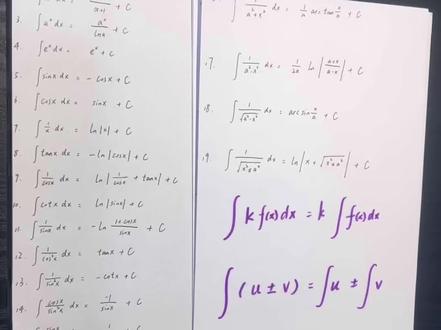 ∫ dx = / a+1 + C
3. ∫ aˣ dx = aˣ / ln a + C
4. ∫ eˣ dx = eˣ + C
5. ∫ sinx dx = - cosx + C
6. ∫ cosx dx = sinx + C
7. ∫ 1/x dx = ln |x| + C
8. ∫ tanx dx = -ln |cosx| + C
9. ∫ 1/cosx dx = ln | 1/cosx + tanx | + C
10. ∫ cotx dx = ln |sinx| + C
11. ∫ 1/sinx dx = - ln | 1+cosx / sinx | + C
12. ∫ 1/cos²x dx = tanx + C
13. ∫ 1/sin²x dx = - cotx + C
14. ∫ cosx/sin²x dx = -1/sinx + C
∫ sinx dx = 1 + C
∫ 1/a²+x² dx = 1/a arc tan x/a + C
17. ∫ 1/a²-x² dx = 1/2a ln | a+x / a-x | + C
18. ∫ 1/√a²-x² dx = arc sin x/a + C
19. ∫ 1/√x²±a² dx = ln | x + √x²±a² | + C
∫ k f(x)dx = k ∫ f(x)dx
∫ (u ± v) = ∫u ± ∫v